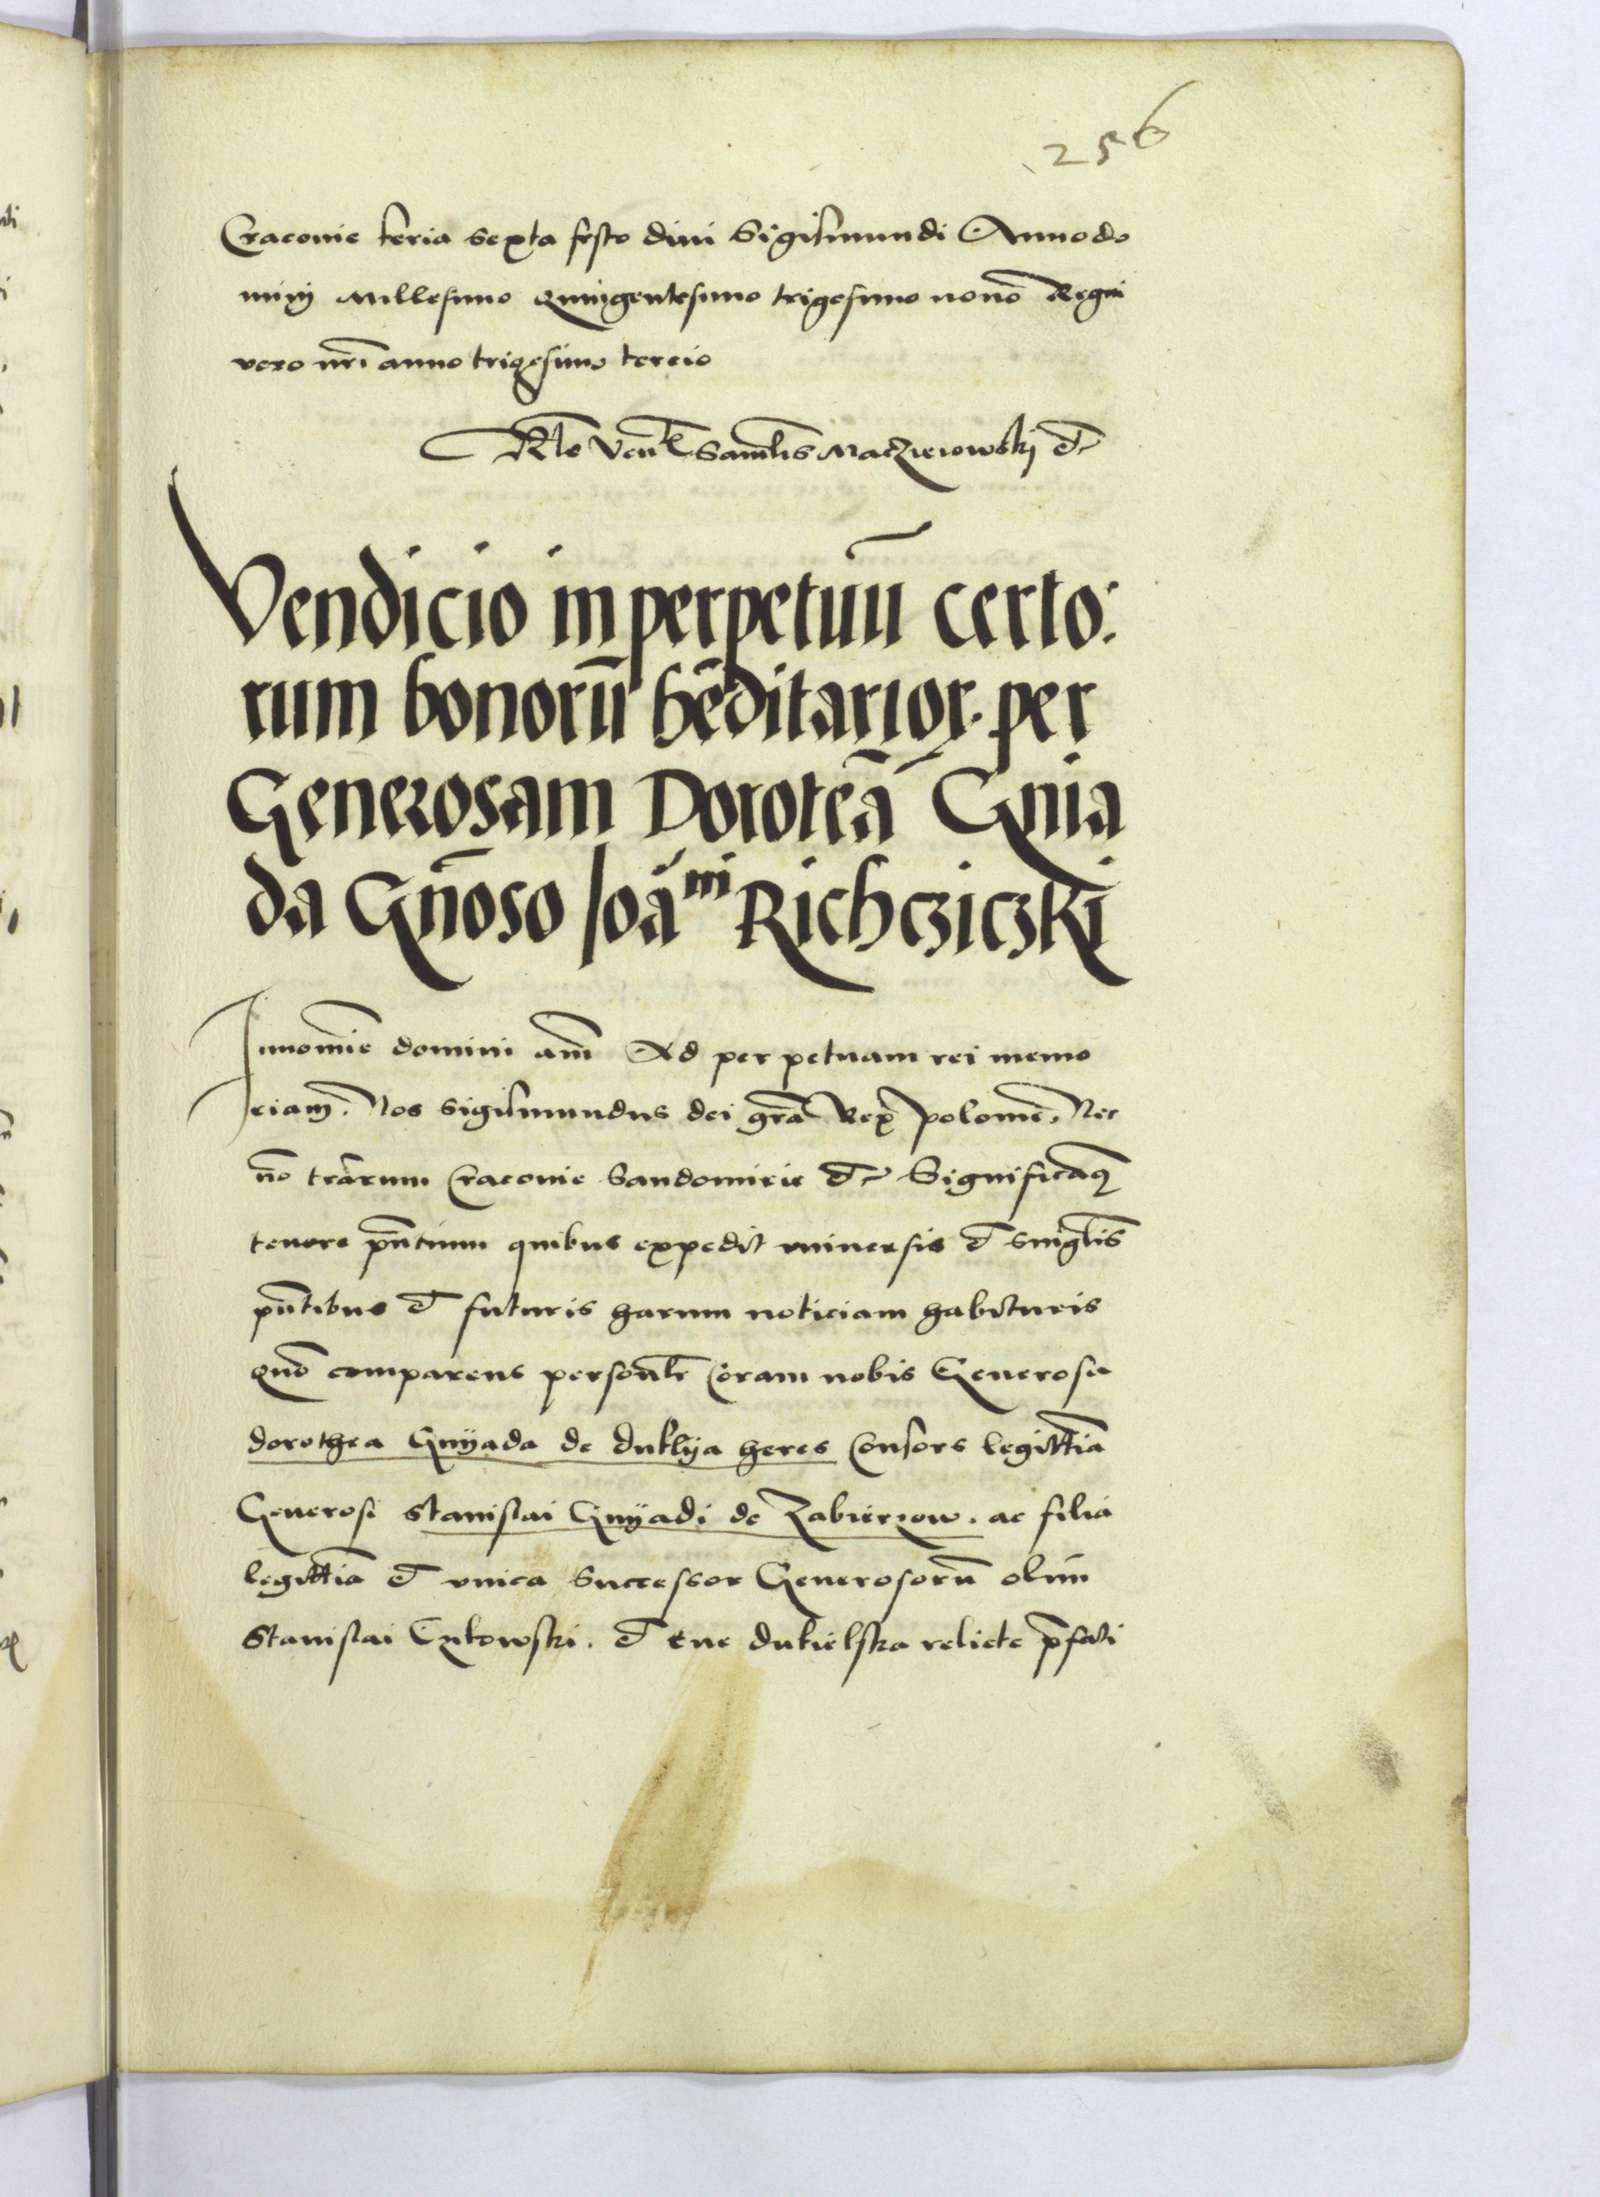 256
Cracovie feria sexta festo divi Sigismundi Anno do
mini Millesimo quingentesimo trigesimo nono Regni
vero nrī anno trigesimo tercio
Rlo Ven Samlis Maczieiowskj etc
Vendicio in perpetuū certo:
rum bonorū hēditarior. per
Generosam Doroteā Gnia
da Gnōso Joāni Richcziczki
In nomīe domini amē Ad perpetuam rei memo
riam. Nos Sigismundus dei grā Rex polonie, Nec
nō trārum Cracovie Sandomirie etc Significamq
tenore pntium quibus expedit universis et singlis
pntibus et futuris harum noticiam habituris
quō comparens personlr Coram nobis Generosa
dorothea Gnÿada de duklÿa heres Consors legittīa
Generosi Stanislai Gnÿadi de Zabierzow. ac filia
legittīa et unica Successor Generosorū olim
Stanislai Czkowski. et Eve dukielska relicte pfati